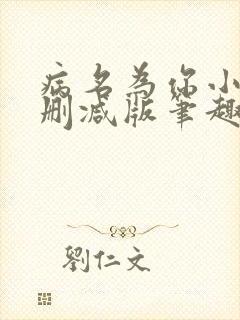 病名为你小
删减版笔趣
劉仁文